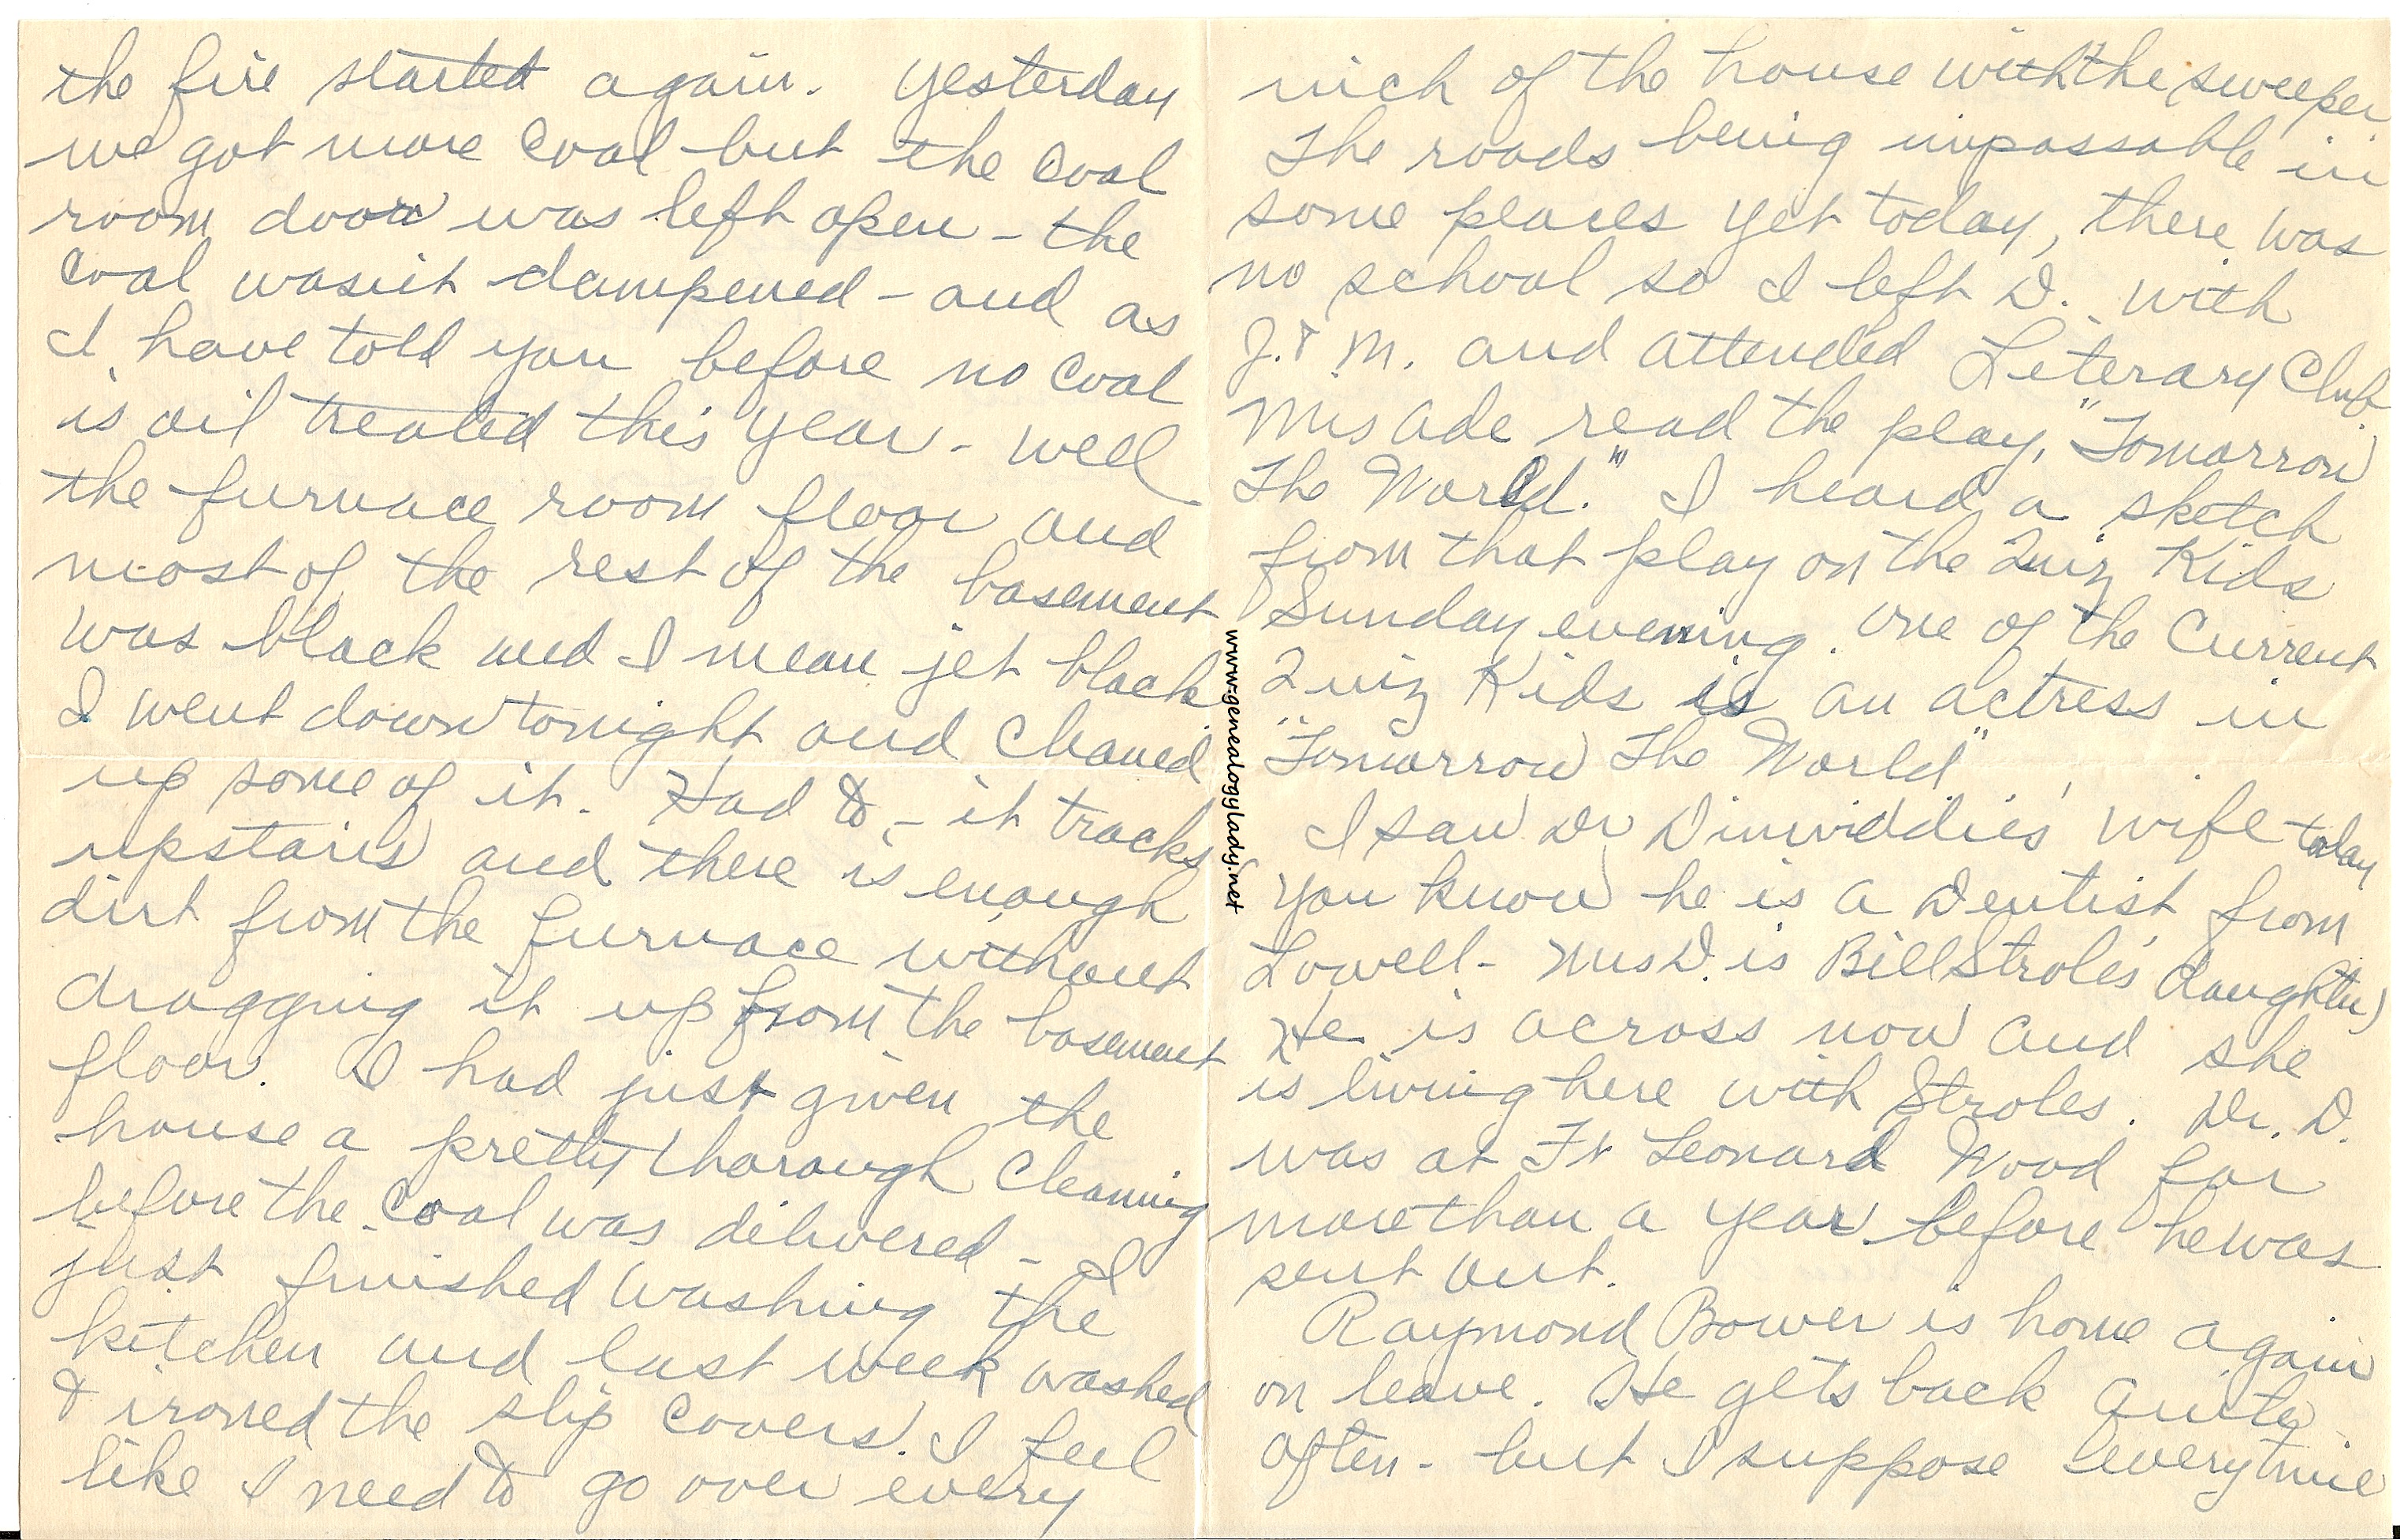 the fire started again. Yesterday
we got more coal but the coal
room door was left open - the
coal wasn't dampened - and as
I have told you before no coal
is oil treated this year - well
the furnace room floor and
most of the rest of the basement
was black and I mean jet black
I went down tonight and cleaned
up some of it. Had to - it tracks
upstairs and there is enough
dirt from the furnace without
dragging it up from the basement
floor. I had just given the
house a pretty thorough cleaning
before the coal was delivered - I
just finished washing the
kitchen and last week washed
& ironed the slip covers. I feel
like I need to go over every
inch of the house with the sweeper
The roads being impassable in
some places yet today, there was
no school so I left D. with
J. & M. and attended Literary Club.
Mrs Ade read the play, "Tomorrow
The World." I heard a sketch
from that play on the Quiz Kids
Sunday evening. One of the current
Quiz Kids is an actress in
"Tomorrow The World"
I saw Dr Dinwiddie's wife today
You know he is a Dentist from
Lowell - Mrs D. is Bill Strole's daughter)
He is across now and she
is living here with Stroles. Dr. D.
was at Ft Leonard Wood for
more than a year before he was
sent out.
Raymond Bower is home again
on leave. He gets back quite
often - but I suppose everytime
www.genealogylady.net